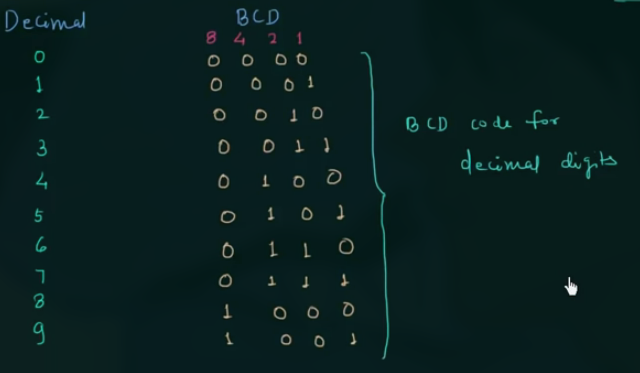 Decimal BCD
8 4 2 1
0 0 0 0 0
1 0 0 0 1
2 0 0 1 0
3 0 0 1 1
4 0 1 0 0
5 0 1 0 1
6 0 1 1 0
7 0 1 1 1
8 1 0 0 0
9 1 0 0 1
BCD code for
decimal digits